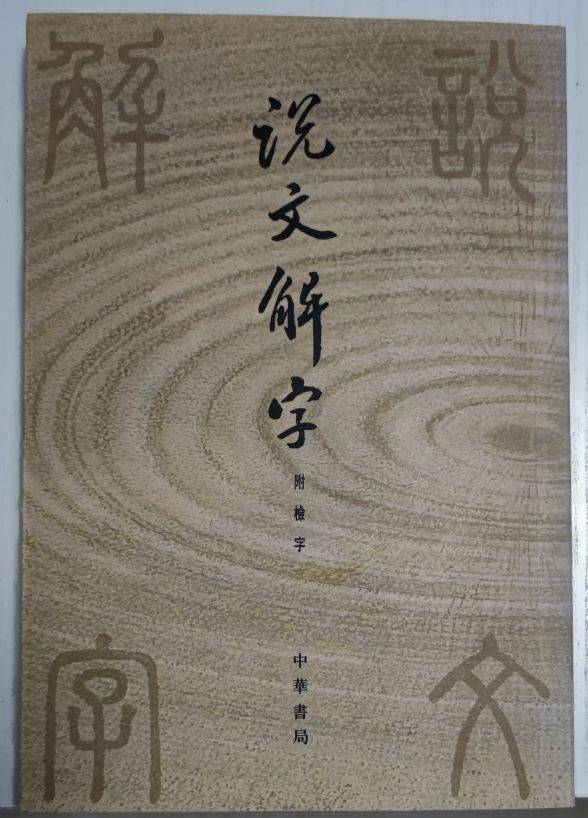 説文解字
附檢字
中華書局
説
文
解
字